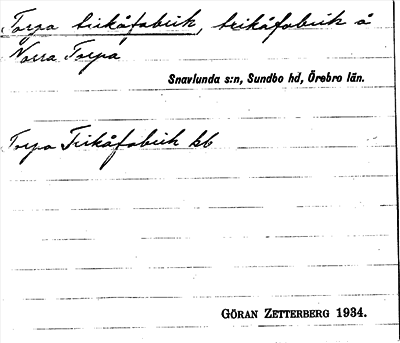 Torpa trikåfabrik, trikåfabrik å
Norra Torpa
Snavlunda s:n, Sundbo hd, Örebro län.
Torpa Trikåfabrik kb
GÖRAN ZETTERBERG 1934.